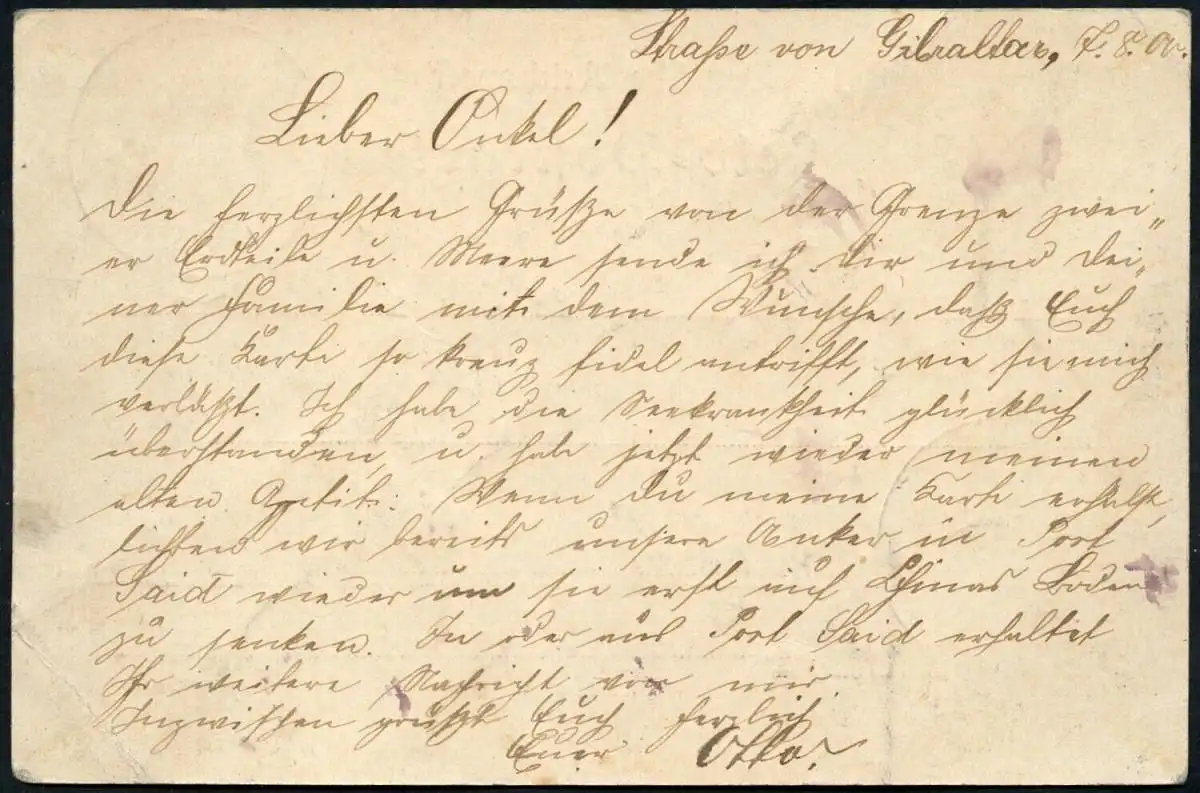 Straße von Gibraltar, 7. 8. 00.
Lieber Onkel!
Die herzlichsten Grüße von der Grenze zwei„
er Erdteile u. Meere sende ich Dir und Dei„
ner Familie mit dem Wunsche, daß Euch
diese Karte so kreuz fidel antrifft, wie sie mich
verläßt. Ich habe die Seekrankheit glücklich
überstanden, u. habe jetzt wieder meinen
alten Apetit. Wenn Du meine Karte erhälst,
lichten wir bereits unsere Anker in Port
Said wieder um sie erst auf Chinas Boden
zu senken. In oder aus Port Said erhaltet
Ihr weitere Nachricht von mir.
Inzwischen grüßt Euch herzlich
Euer Otto.